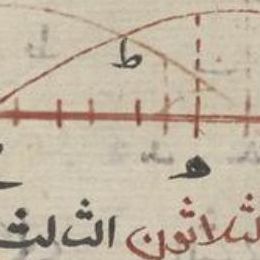 ط
ه
الثلاثون الثالث